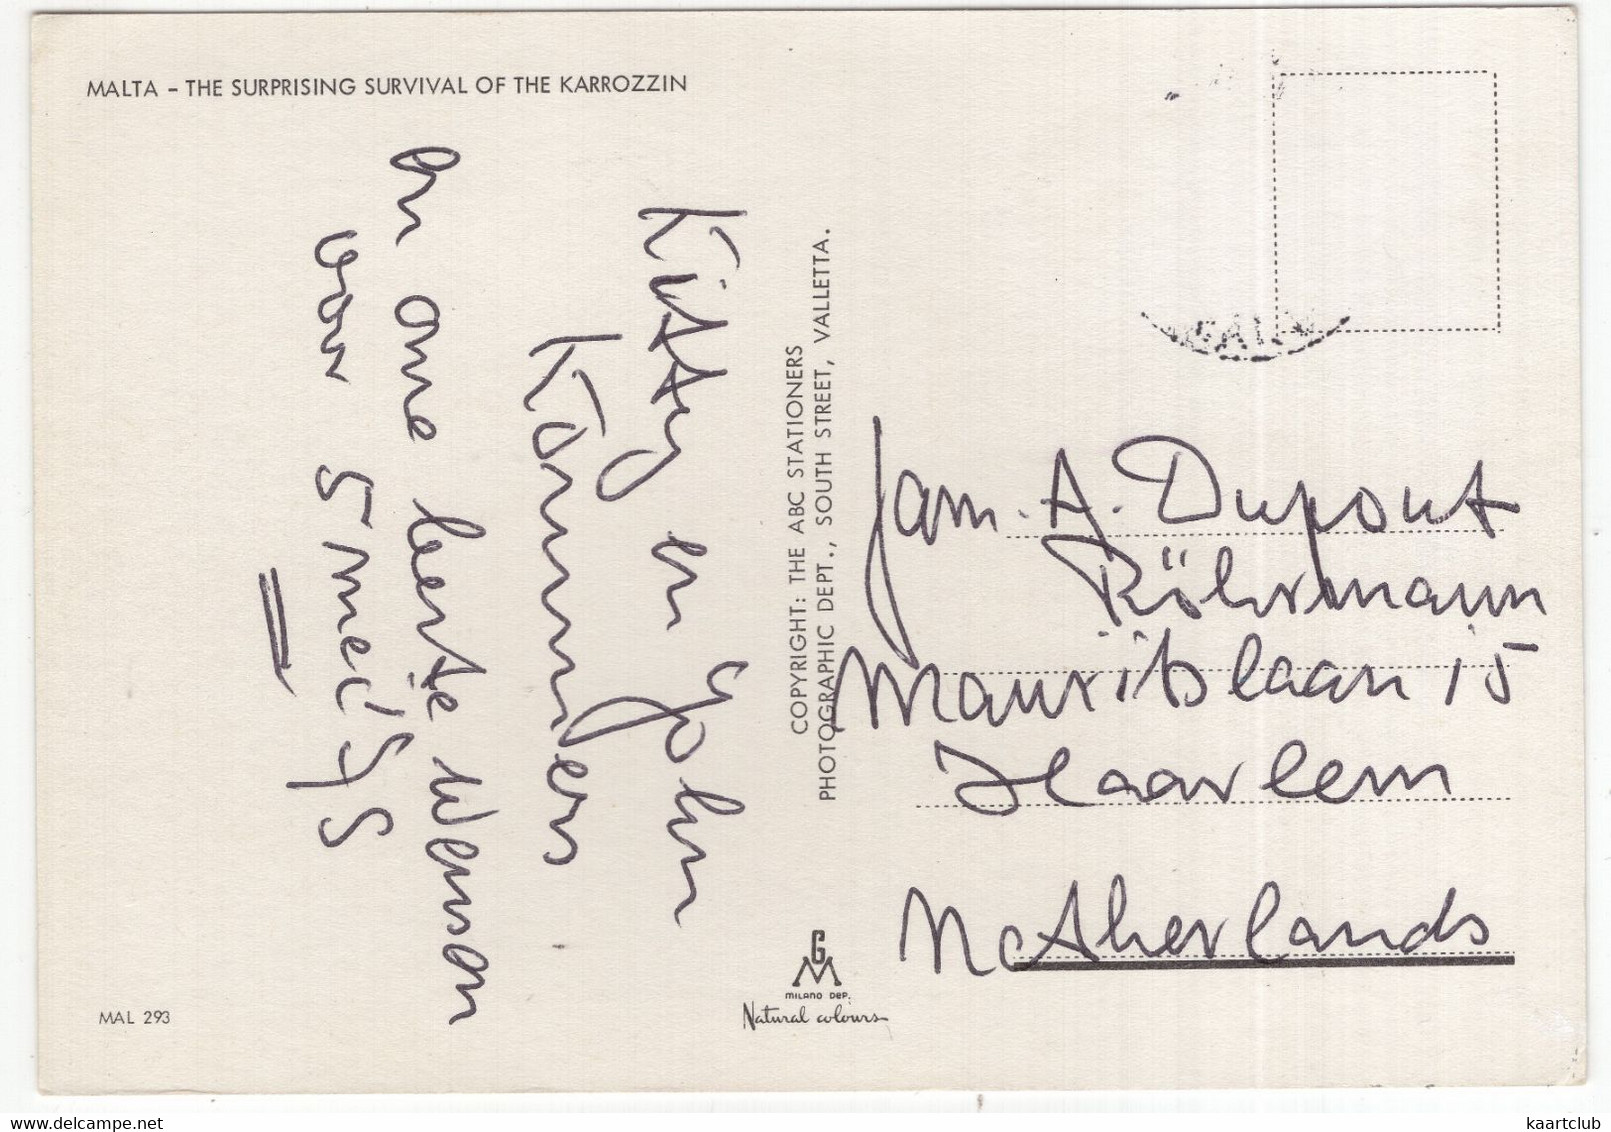 MALTA – THE SURPRISING SURVIVAL OF THE KARROZZIN
Kitty en John
Kommers
en one beste wensen
voor 5 mei '75
COPYRIGHT: THE ABC STATIONERS
PHOTOGRAPHIC DEPT., SOUTH STREET, VALLETTA.
Fam. A. Dupont
Röhrmann
Mauritslaan 15
Haarlem
Netherlands
GM
MILANO DEP.
Natural colours
MAL 293
delcampe.net
kaartclub